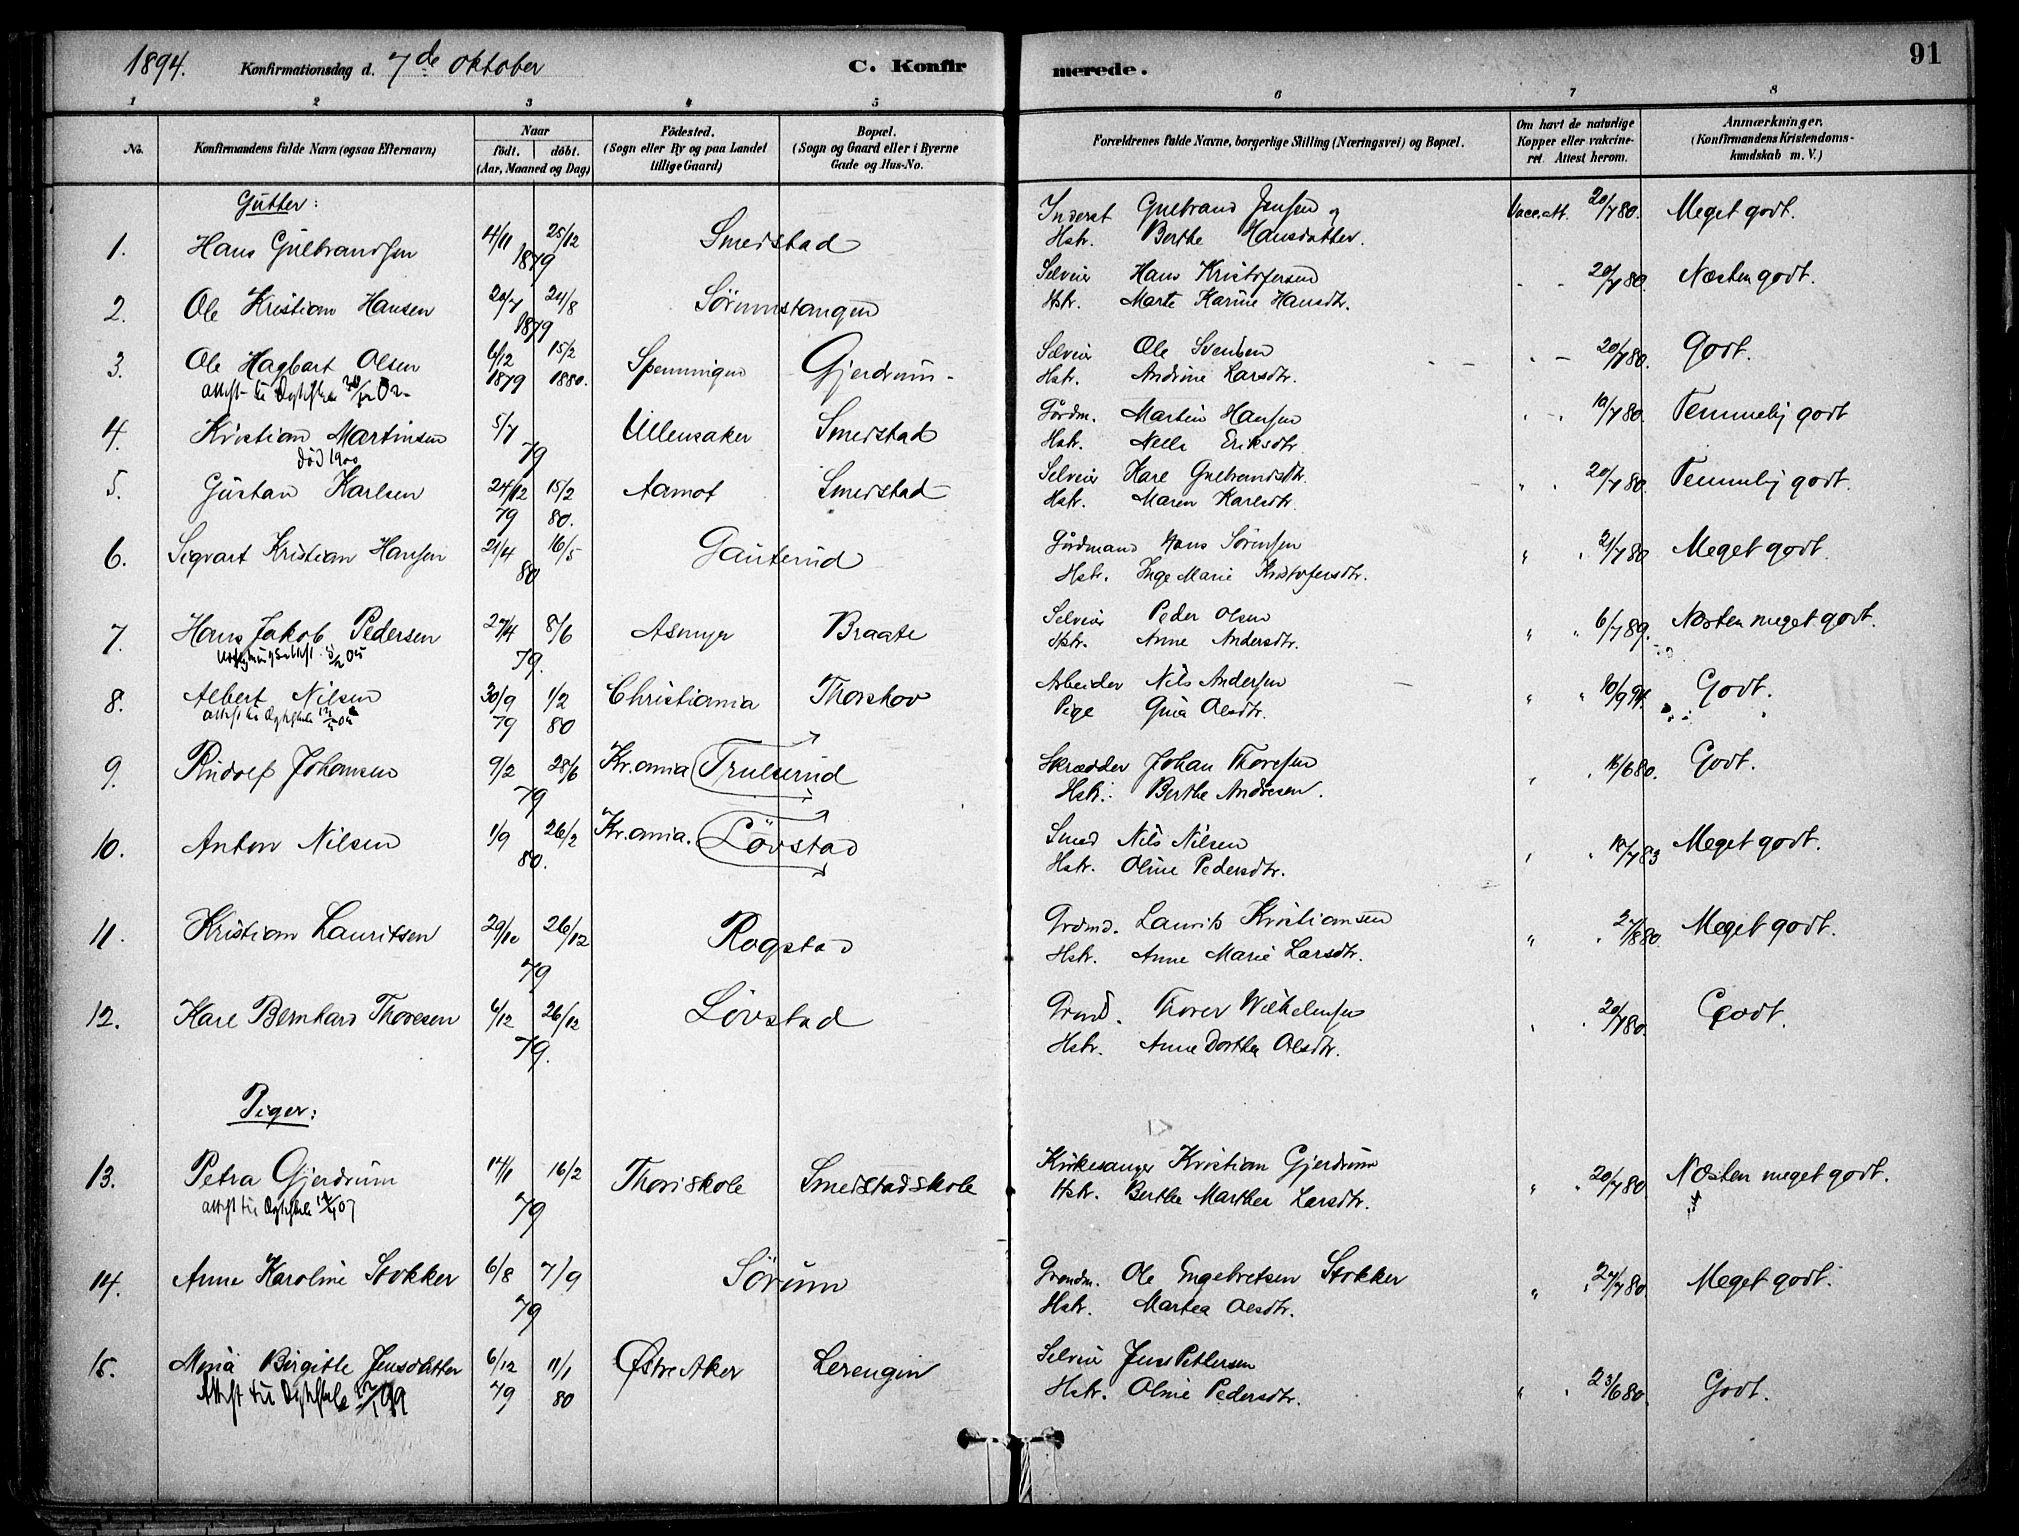 1894. Konfirmationsdag d. 7de oktober C. Konfirmerede. 91
1 2 3 4 5 6 7 8
No. Konfirmandens fulde Navn (ogsaa Efternavn) Naar født. døbt. (Aar, Maaned og Dag) Fødested. (Sogn eller By og paa Landet tillige Gaard) Bopæl. (Sogn og Gaard eller i Byerne Gade og Hus-No. Forældrenes fulde Navne, borgerlige Stilling (Næringsvei) og Bopæl. Om havt de naturlige Kopper eller vakcineret. Attest herom. Anmærkninger. (Konfirmandens Kristendomskundskab m. V.)
Gutter:
1. Hans Gulbrandsen 4/11 25/12 1879 Smedstad Inderst Gulbrand Jensen og Vacc.att. 20/7 80. Meget godt.
Hstr. Berthe Hansdatter.
2. Ole Kristian Hansen 20/7 24/8 1879 Sørumstangen Selveier Hans Kristofersen " " 20/7 80. Næsten godt.
Hstr. Marte Karine Hansdtr.
3. Ole Hagbart Olsen 6/12 1879 15/2 1880. Spenningen Gjerdrum Selveier Ole Svendsen " " 20/7 80. Godt.
Hstr. Andrine Larsdtr.
4. Kristian Martinsen 5/7 79 Ullensaker Smedstad Gårdm. Martin Hansen " " 19/7 80. Temmelig godt
død 1900 Hstr. Eriksdtr.
5. Gustav Karlsen 24/12 79 15/2 80. Aamot Smedstad Selveier Karl Gulbrandsdtr. " " 20/7 80. Temmelig godt.
Hstr. Maren Karlsdtr.
6. Sigvart Kristian Hansen 21/4 16/5 80 Gauterud Gårdmand Hans Sørensen " " 21/7 80 Meget godt.
Hstr. Inge Marie Kristofersdtr.
7. Hans Jakob Pedersen 27/4 8/6 79. Asmyr Braate Selveier Peder Olsen " " 6/7 89. Næsten meget godt.
Hstr. Anne Andersdtr.
8. Albert Nilsen 30/9 79 1/2 80 Christiania Thorshov Arbeider Nils Andersen " " 10/9 94. Godt.
Pige Gina Olsdtr.
9. Rudolf Johansen 9/2 28/6 79 Kr.ania Trulsrud Skrædder Johan Thoresen " " 16/6 80. Godt.
Hstr. Berthe Andresen.
10. Anton Nilsen 1/9 26/2 80. Kr.ania. Løvstad Smed Nils Nilsen " " 18/7 83 Meget godt.
Hstr. Oline Pedersdtr.
11. Kristian Lauritsen 29/10 26/12 79 Rogstad Grdmd. Laurits Kristiansen " " 27/8 80. Meget godt.
Hstr. Anne Marie Larsdtr.
12. Karl Bernhard Thoresen 6/12 26/12 79. Løvstad Grmd. Thorer Wilhelmsen " " 20/7 80. Godt.
Hstr. Anne Dorthea Olsdtr.
Piger:
13. Petra Gjerdrum 14/1 16/2 79 Thoriskole Smedstadskole Kirkesanger Kristian Gjerdrum " " 20/7 80 Næsten meget godt.
Hstr. Berthe Marthea Larsdtr.
14. Anne Karoline Stokker 6/8 7/9 79 Sørum Grdm. Ole Engebretsen Stokker " " 27/7 80. Meget godt.
Hstr. Martea Olsdtr.
15. Birgitte Jensdatter 6/12 79 11/1 80 Østre Aker Lerengin Selveier Jens Pettersen " " 23/6 80. Godt.
Hstr. Oline Pedersdtr.